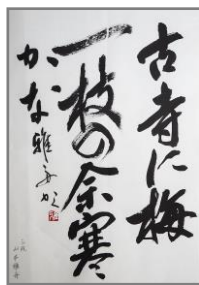 古寺に梅
一枝の余寒
かな 雅舟